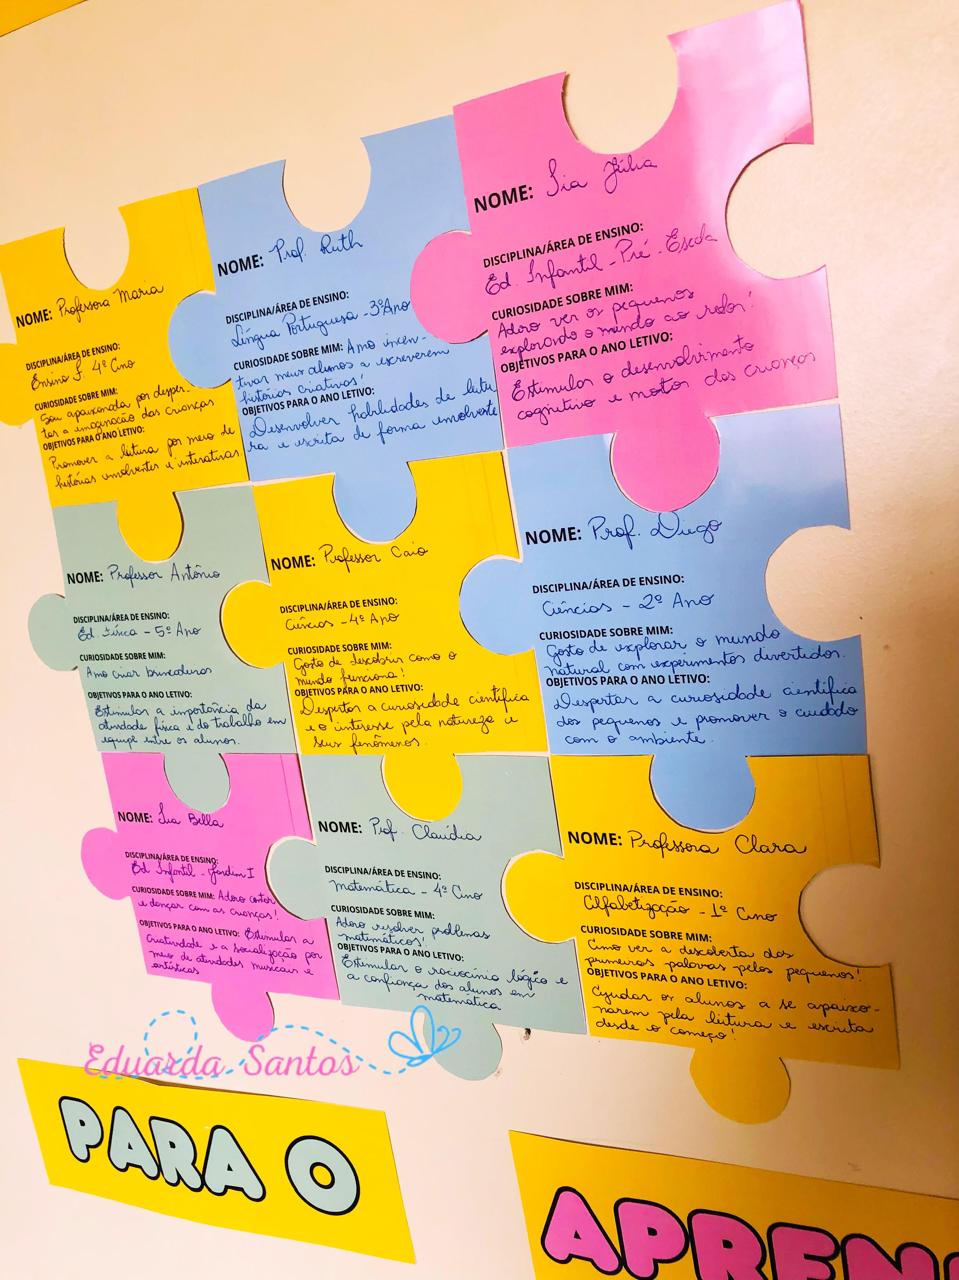 NOME: Professora Maria
DISCIPLINA/ÁREA DE ENSINO:
Ensino f. 4º Ano
CURIOSIDADE SOBRE MIM:
Sou apaixonada por desper-
tar a imaginação das crianças
OBJETIVOS PARA O ANO LETIVO:
Promover a leitura por meio de
histórias envolventes e interativas
NOME: Prof. Ruth
DISCIPLINA/ÁREA DE ENSINO:
Língua Portuguesa - 3º Ano
CURIOSIDADE SOBRE MIM: Amo incen-
tivar meus alunos a escreverem
histórias criativas!
OBJETIVOS PARA O ANO LETIVO:
Desenvolver habilidades de leitu
ra e escrita de forma envolvente
NOME: Tia Júlia
DISCIPLINA/ÁREA DE ENSINO:
Ed. Infantil - Pré-Escola
CURIOSIDADE SOBRE MIM:
Adoro ver os pequenos
explorando o mundo ao redor!
OBJETIVOS PARA O ANO LETIVO:
Estimular o desenvolvimento
cognitivo e motor das crianças
NOME: Professor Antônio
DISCIPLINA/ÁREA DE ENSINO:
Ed. Física - 5º Ano
CURIOSIDADE SOBRE MIM:
Amo criar brincadeiras
OBJETIVOS PARA O ANO LETIVO:
Estimular a importância da
atividade física e do trabalho em
equipe entre os alunos.
NOME: Professor Caio
DISCIPLINA/ÁREA DE ENSINO:
Ciências - 4º Ano
CURIOSIDADE SOBRE MIM:
Gosto de descobrir como o
mundo funciona!
OBJETIVOS PARA O ANO LETIVO:
Despertar a curiosidade científica
e o interesse pela natureza e
seus fenômenos.
NOME: Prof. Diego
DISCIPLINA/ÁREA DE ENSINO:
Ciências - 2º Ano
CURIOSIDADE SOBRE MIM:
Gosto de explorar o mundo
natural com experimentos divertidos.
OBJETIVOS PARA O ANO LETIVO:
Despertar a curiosidade científica
dos pequenos e promover o cuidado
com o ambiente.
NOME: Tia Bella
DISCIPLINA/ÁREA DE ENSINO:
Ed Infantil - Jardim I
CURIOSIDADE SOBRE MIM: Adoro cantar
e dançar com as crianças!
OBJETIVOS PARA O ANO LETIVO: Estimular a
criatividade e a socialização por
meio de atividades musicais e
artísticas
NOME: Prof. Claudia
DISCIPLINA/ÁREA DE ENSINO:
Matemática - 4º Ano
CURIOSIDADE SOBRE MIM:
Adoro resolver problemas
matemáticos!
OBJETIVOS PARA O ANO LETIVO:
Estimular o raciocínio lógico e
a confiança dos alunos em
matemática
NOME: Professora Clara
DISCIPLINA/ÁREA DE ENSINO:
Alfabetização - 1º Ano
CURIOSIDADE SOBRE MIM:
Amo ver a descoberta das
primeiras palavras pelos pequenos!
OBJETIVOS PARA O ANO LETIVO:
Ajudar os alunos a se apaixo-
narem pela leitura e escrita
desde o começo!
Eduarda Santos
PARA O
APREN